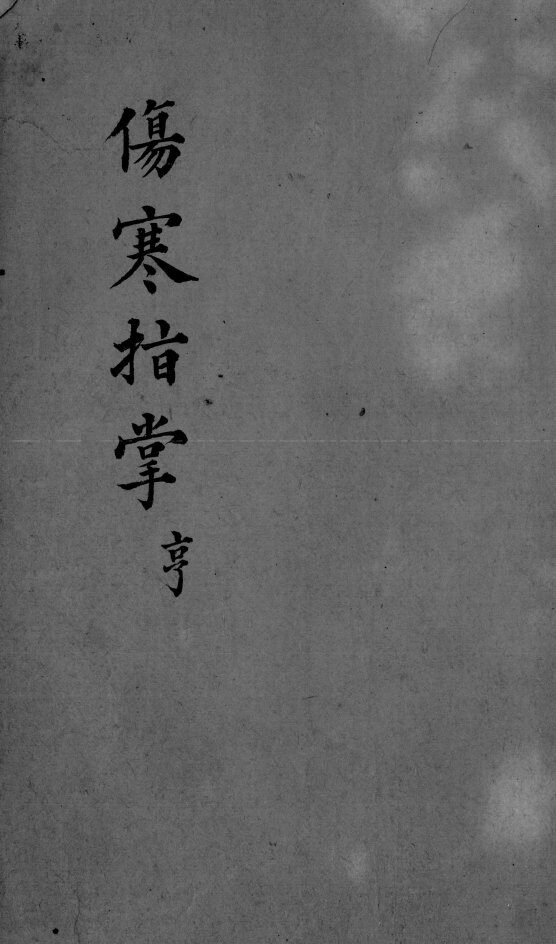 傷寒指掌
亨